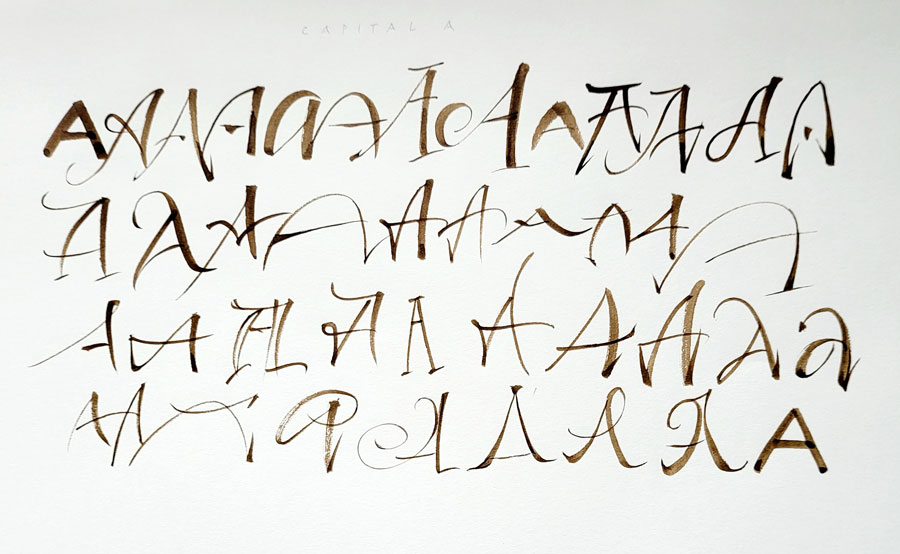 CAPITAL A
A A A A A A A A A A A A A
A A A A A A A A A
A A A A A A A A A A
A A A A A A A A